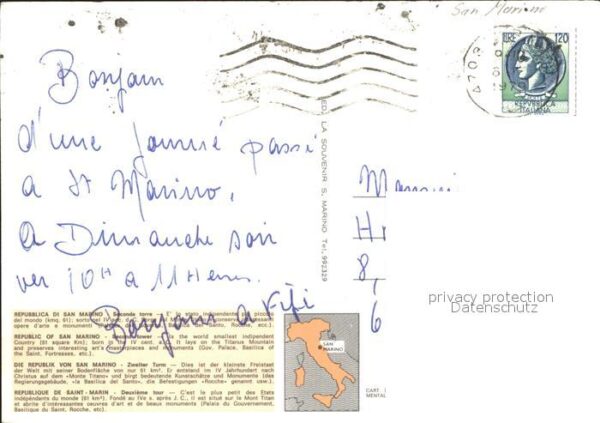 San Marino
LIRE 120
REPUBBLICA
ITALIANA
Bonjour
d'une journé passé
a St Marino,
a Dimanche soir
ver 10H a 11Heures.
Bonjour a Fifi
ED. LA SOUVENIR S. MARINO Tel. 992329
H
8,
6
privacy protection
Datenschutz
REPUBBLICA DI SAN MARINO - Seconda torre - E' lo stato indipendente più piccolo
del mondo (kmq. 61); sorto nel IV sec. d.C.
opere d'arte e monumenti
REPUBLIC OF SAN MARINO - the world smallest independent
Country (61 square Km); born in the IV cent. a.C. It lays on the Titanus Mountain
and preserves interesting art's masterpieces and Monuments (Gov. Palace, Basilica of
the Saint, Fortresses, etc.).
DIE REPUBLIK VON SAN MARINO - Zweiter Turm - Dies ist der kleinste Freistaat
der Welt mit seiner Bodenfläche von nur 61 km². Er entstand im IV Jahrhundert nach
Christus auf dem «Monte Titano» und birgt bedeutende Kunstschätze und Monumente (das
Regierungsgebäude, «la Basilica del Santo», die Befestigungen «Rocche» genannt usw.).
REPUBLIQUE DE SAINT-MARIN - Deuxième tour - C'est le plus petit des Etats
indépendants du monde (61 km²). Fondé au IVe s. après J. C., il est situé sur le Mont Titan
et abrite d'intéressantes oeuvres d'art et de beaux monuments (Palais du Gouvernement,
Basilique du Saint, Rocche, etc.).
SAN
MARINO
CART. I
MENTAL